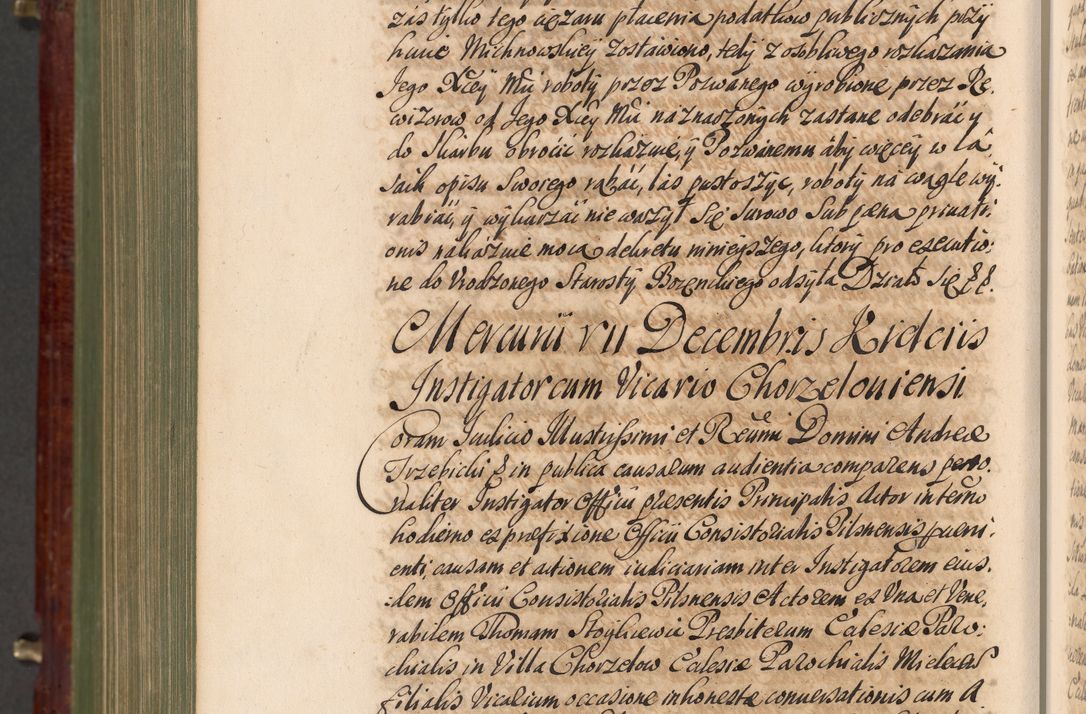 zás tylko tego ciężaru płacenia podatkow publicznych przy
hucie Michnowskiey zostawiono, tedy z osobliwego roskazania
Jego Xcey Mći roboty przez Pozwanego wyrobione przez Re,
wizorow od Jego Xcey Mći náznaszonych zastane odebráć y
do Skarbu obroćić roskázuie, y Pozwánemu áby więcey w lá,
sach opisu Sworego rąbáć, lás pustoszyć, roboty ná węgle wy,
rabiáć, y wykurzáć nie ważył się surowo sub pæna privati,
onis nákázuie mocą dekretu ninieyszego, ktory pro executio,
ne do Vrodzonego Starosty Bozęckiego odsyła Działo się &&.
Mercurii VII Decembris Kielciis
Instigator cum Vicario Chorzelouiensi
Coram Iudicio Illustrissimi et Reũmi Domini Andreæ
Trzebicki & in publica causarum audientia comparens perso,
naliter Instigator Officii præsentis Principalis Actor in termo
hodierno ex præfixione Officii Consistorialis Pilsnensis pueni,
enti, causam et actionem iudiciariam inter Instigatorem eius,
dem Officii Consistorialis Pilsnensis Actorem ex Vna et Vene,
rabilem Thomam Stoykiewic Presbiterum Ecclesiæ Paro,
chialis in Villa Chorzelow Ecclesiæ Parochialis Mielecen
Filialis Vicarium occasione inhonestæ conuersationis cum A